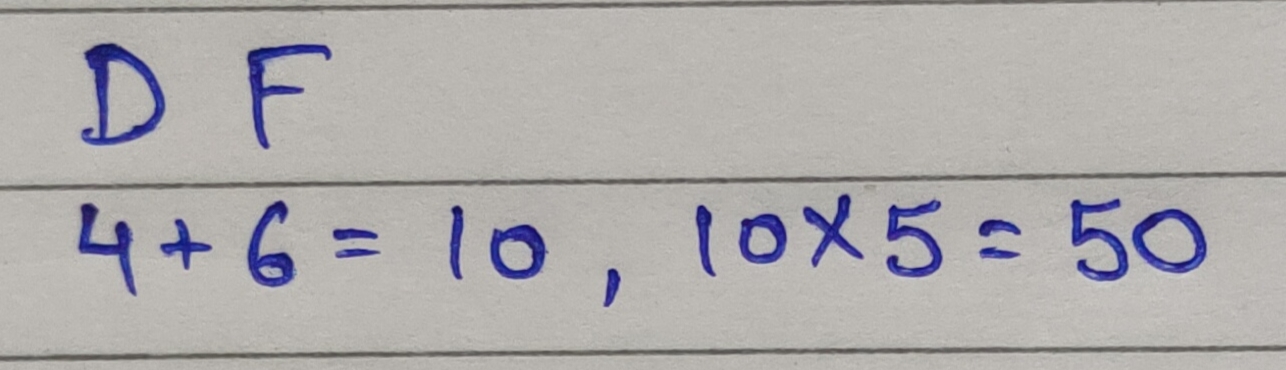 D F
4+6=10, 10×5=50